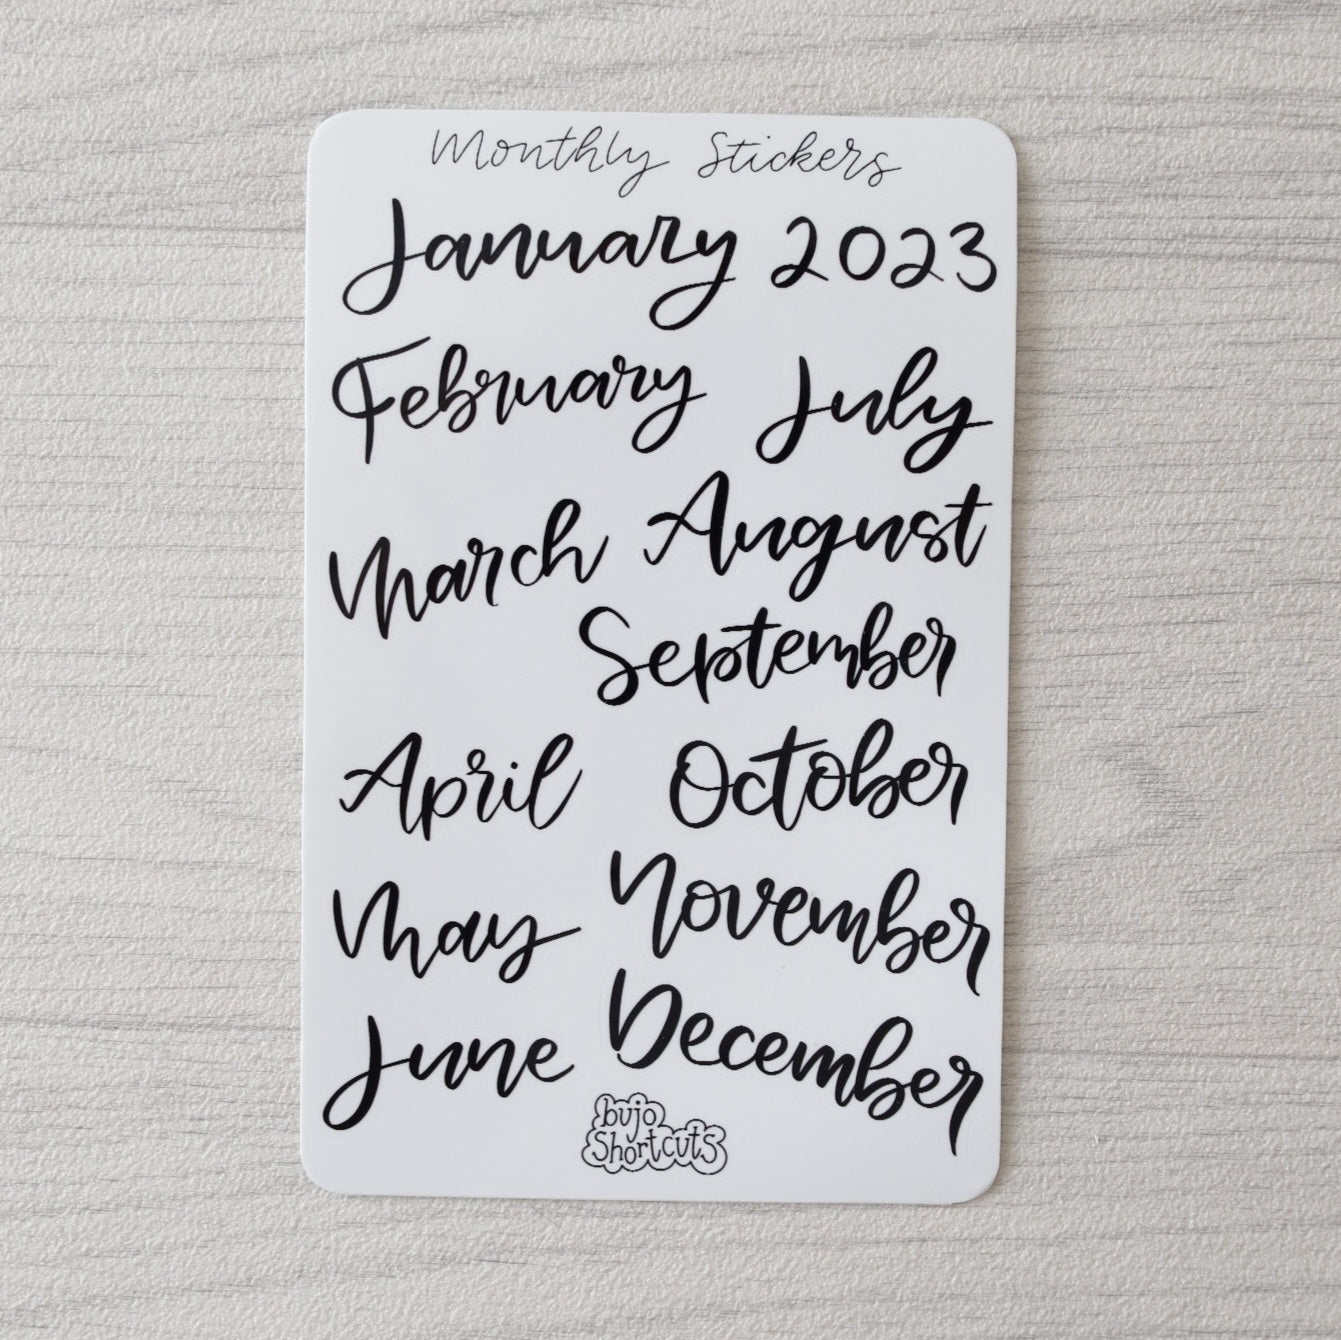 Monthly Stickers
January 2023
February July
March August
September
April October
May November
June December
bujo
Shortcuts